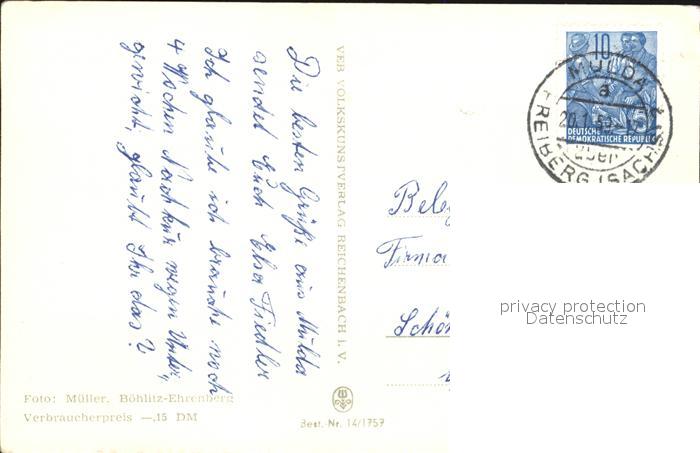 Die besten Grüße aus Mulda
sendet Euch Elsa Fiedler
Ich glaube ich brauche noch
4 Wochen Nachkur wegen Unter,
gewicht, glaubt Ihr das?
VEB VOLKSKUNSTVERLAG REICHENBACH i. V.
10
DEUTSCHE
DEMOKRATISCHE REPUBLIK
MULDA
a
20.1.
über
FREIBERG (SACHS)
Beleg
Firma
Schön
privacy protection
Datenschutz
Foto: Müller, Böhlitz-Ehrenberg
Verbraucherpreis —,15 DM
Best.-Nr. 14/1757